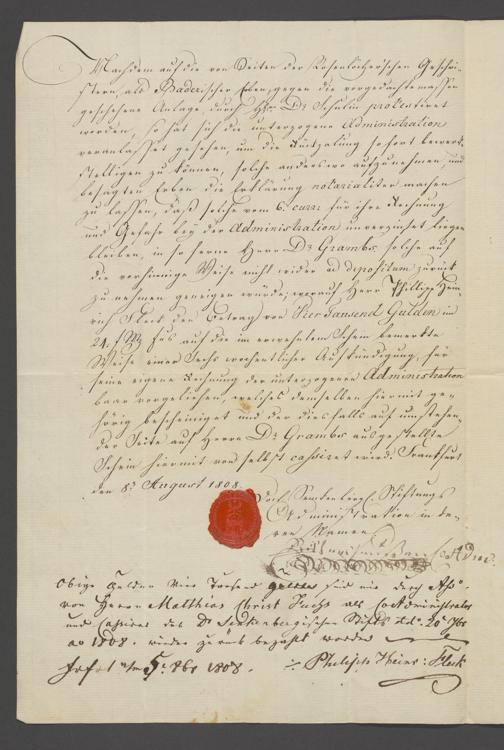 Nachdem auf die von Seiten der Rosenlöcherischen Geschwi-
stern, als Baderischer Erben, gegen die vorgedachtermassen
geschehene Anlage durch Hr. Dr. Schulin protestiret
worden, so hat sich die unterzogene Administration
veranlasset gesehen, um die Rückzalung sofort bewerk-
stelligen zu können, solche anderswo aufzunehmen, und
besagten Erben die Erklärung notarialiter machen
zu lassen, daß solche vom 6. curr: für ihre Rechnung
und Gefahr bey der Administration unverzinset liegen
bleiben, in soferne Herr Dr. Grambs, solche auf
die vorhinnige Weise nicht wider ad depositum zurück
zu nehmen geneigen würde; worauf Herr Phillipp Hein-
rich Fleck den Betrag von Vier tausend Gulden in
24. f Fus auf die im erwehnten Schein bemerkte
Weise einer Sechs wochentlicher Aufkündigung, für
seine eigene Rechnung der unterzogenen Administration
baar vorgeliehen, welches demselben hiermit ge-
hörig bescheiniget und der diesfalls auf umstehen-
der Seite auf Herrn Dr. Grambs ausgestellte
Schein hiermit von selbst cassiret wird. Franckfurt
den 8. August 1808.
Dr. Senckenberg. Stiftungs
Administration in de-
ren Namen
Obige Gulden Vier Tausend sind mir durch
von Herrn Matthias Christ Fuchs als CoAdministrator
und Cassirer des Dr Senkenbergischen Stifts
ao 1808. wieder zurük bezahlt worden
5. 8br 1808. Philipp Heinr: Fleck